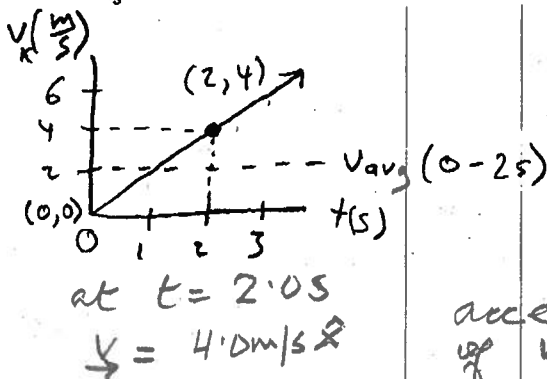 vₓ(m/s)
6
(2,4)
4
2
vavg (0-2s)
(0,0)
0 1 2 3 t(s)
at t = 2.0s
v = 4.0m/s x̂
acce
of v